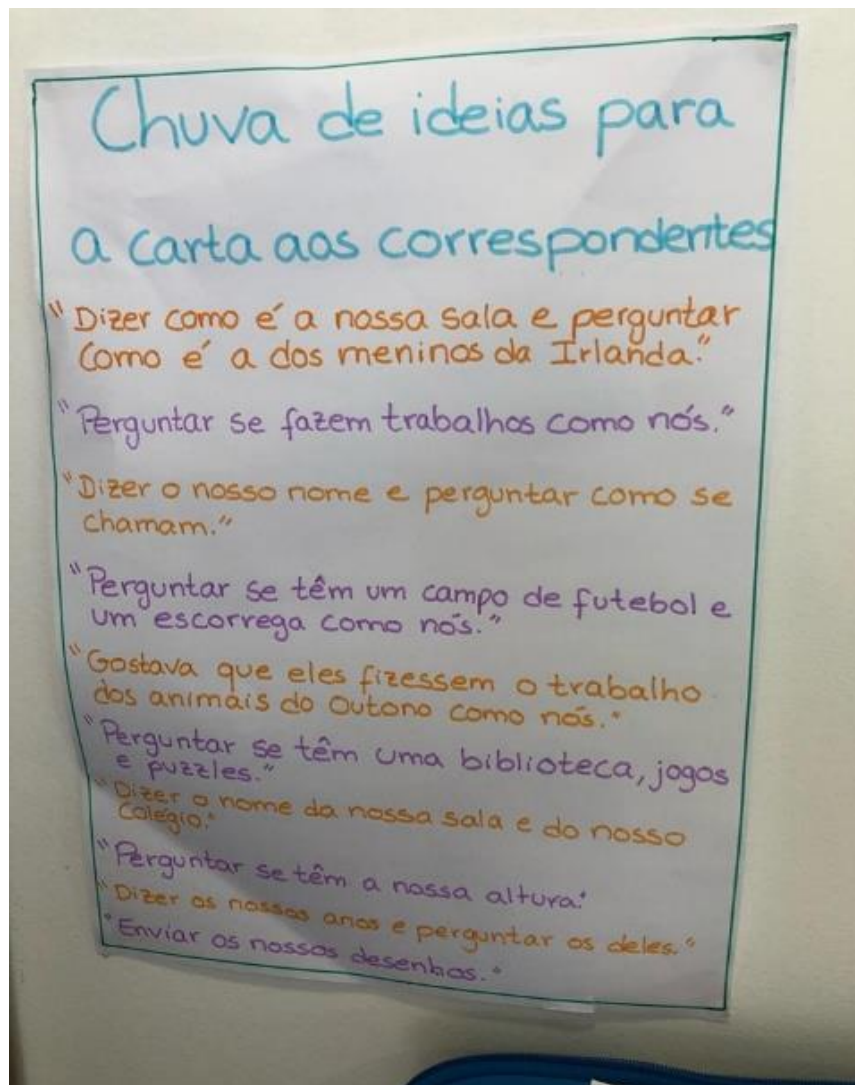 Chuva de ideias para
a carta aos correspondentes
"Dizer como é a nossa sala e perguntar
como é a dos meninos da Irlanda."
"Perguntar se fazem trabalhos como nós."
"Dizer o nosso nome e perguntar como se
chamam."
"Perguntar se têm um campo de futebol e
um escorrega como nós."
"Gostava que eles fizessem o trabalho
dos animais do Outono como nós."
"Perguntar se têm uma biblioteca, jogos
e puzzles."
"Dizer o nome da nossa sala e do nosso
Colégio."
"Perguntar se têm a nossa altura."
"Dizer os nossos anos e perguntar os deles."
"Enviar os nossos desenhos."